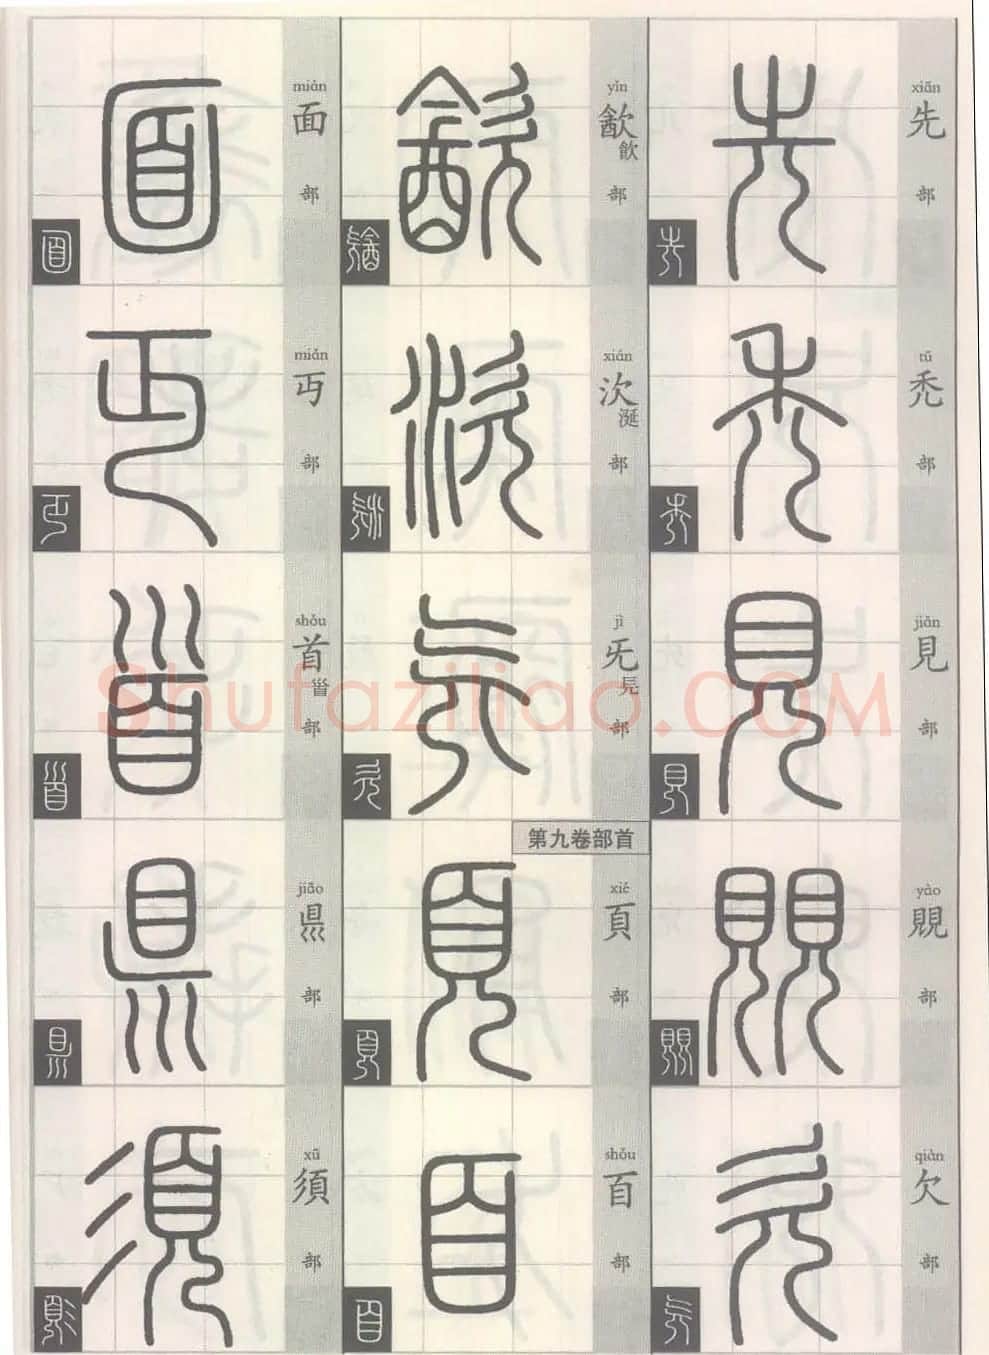 xiān
先
部
tū
禿
部
jiǎn
見
部
yào
覞
部
qiàn
欠
部
yǐn
㱃
飲
部
xián
㳄
涎
部
jì
旡
㒫
部
第九卷部首
xié
頁
部
shǒu
𦣻
部
miàn
面
部
miǎn
丏
部
shǒu
首
𩠐
部
jiāo
県
部
xū
須
部
Shufaziliao.COM